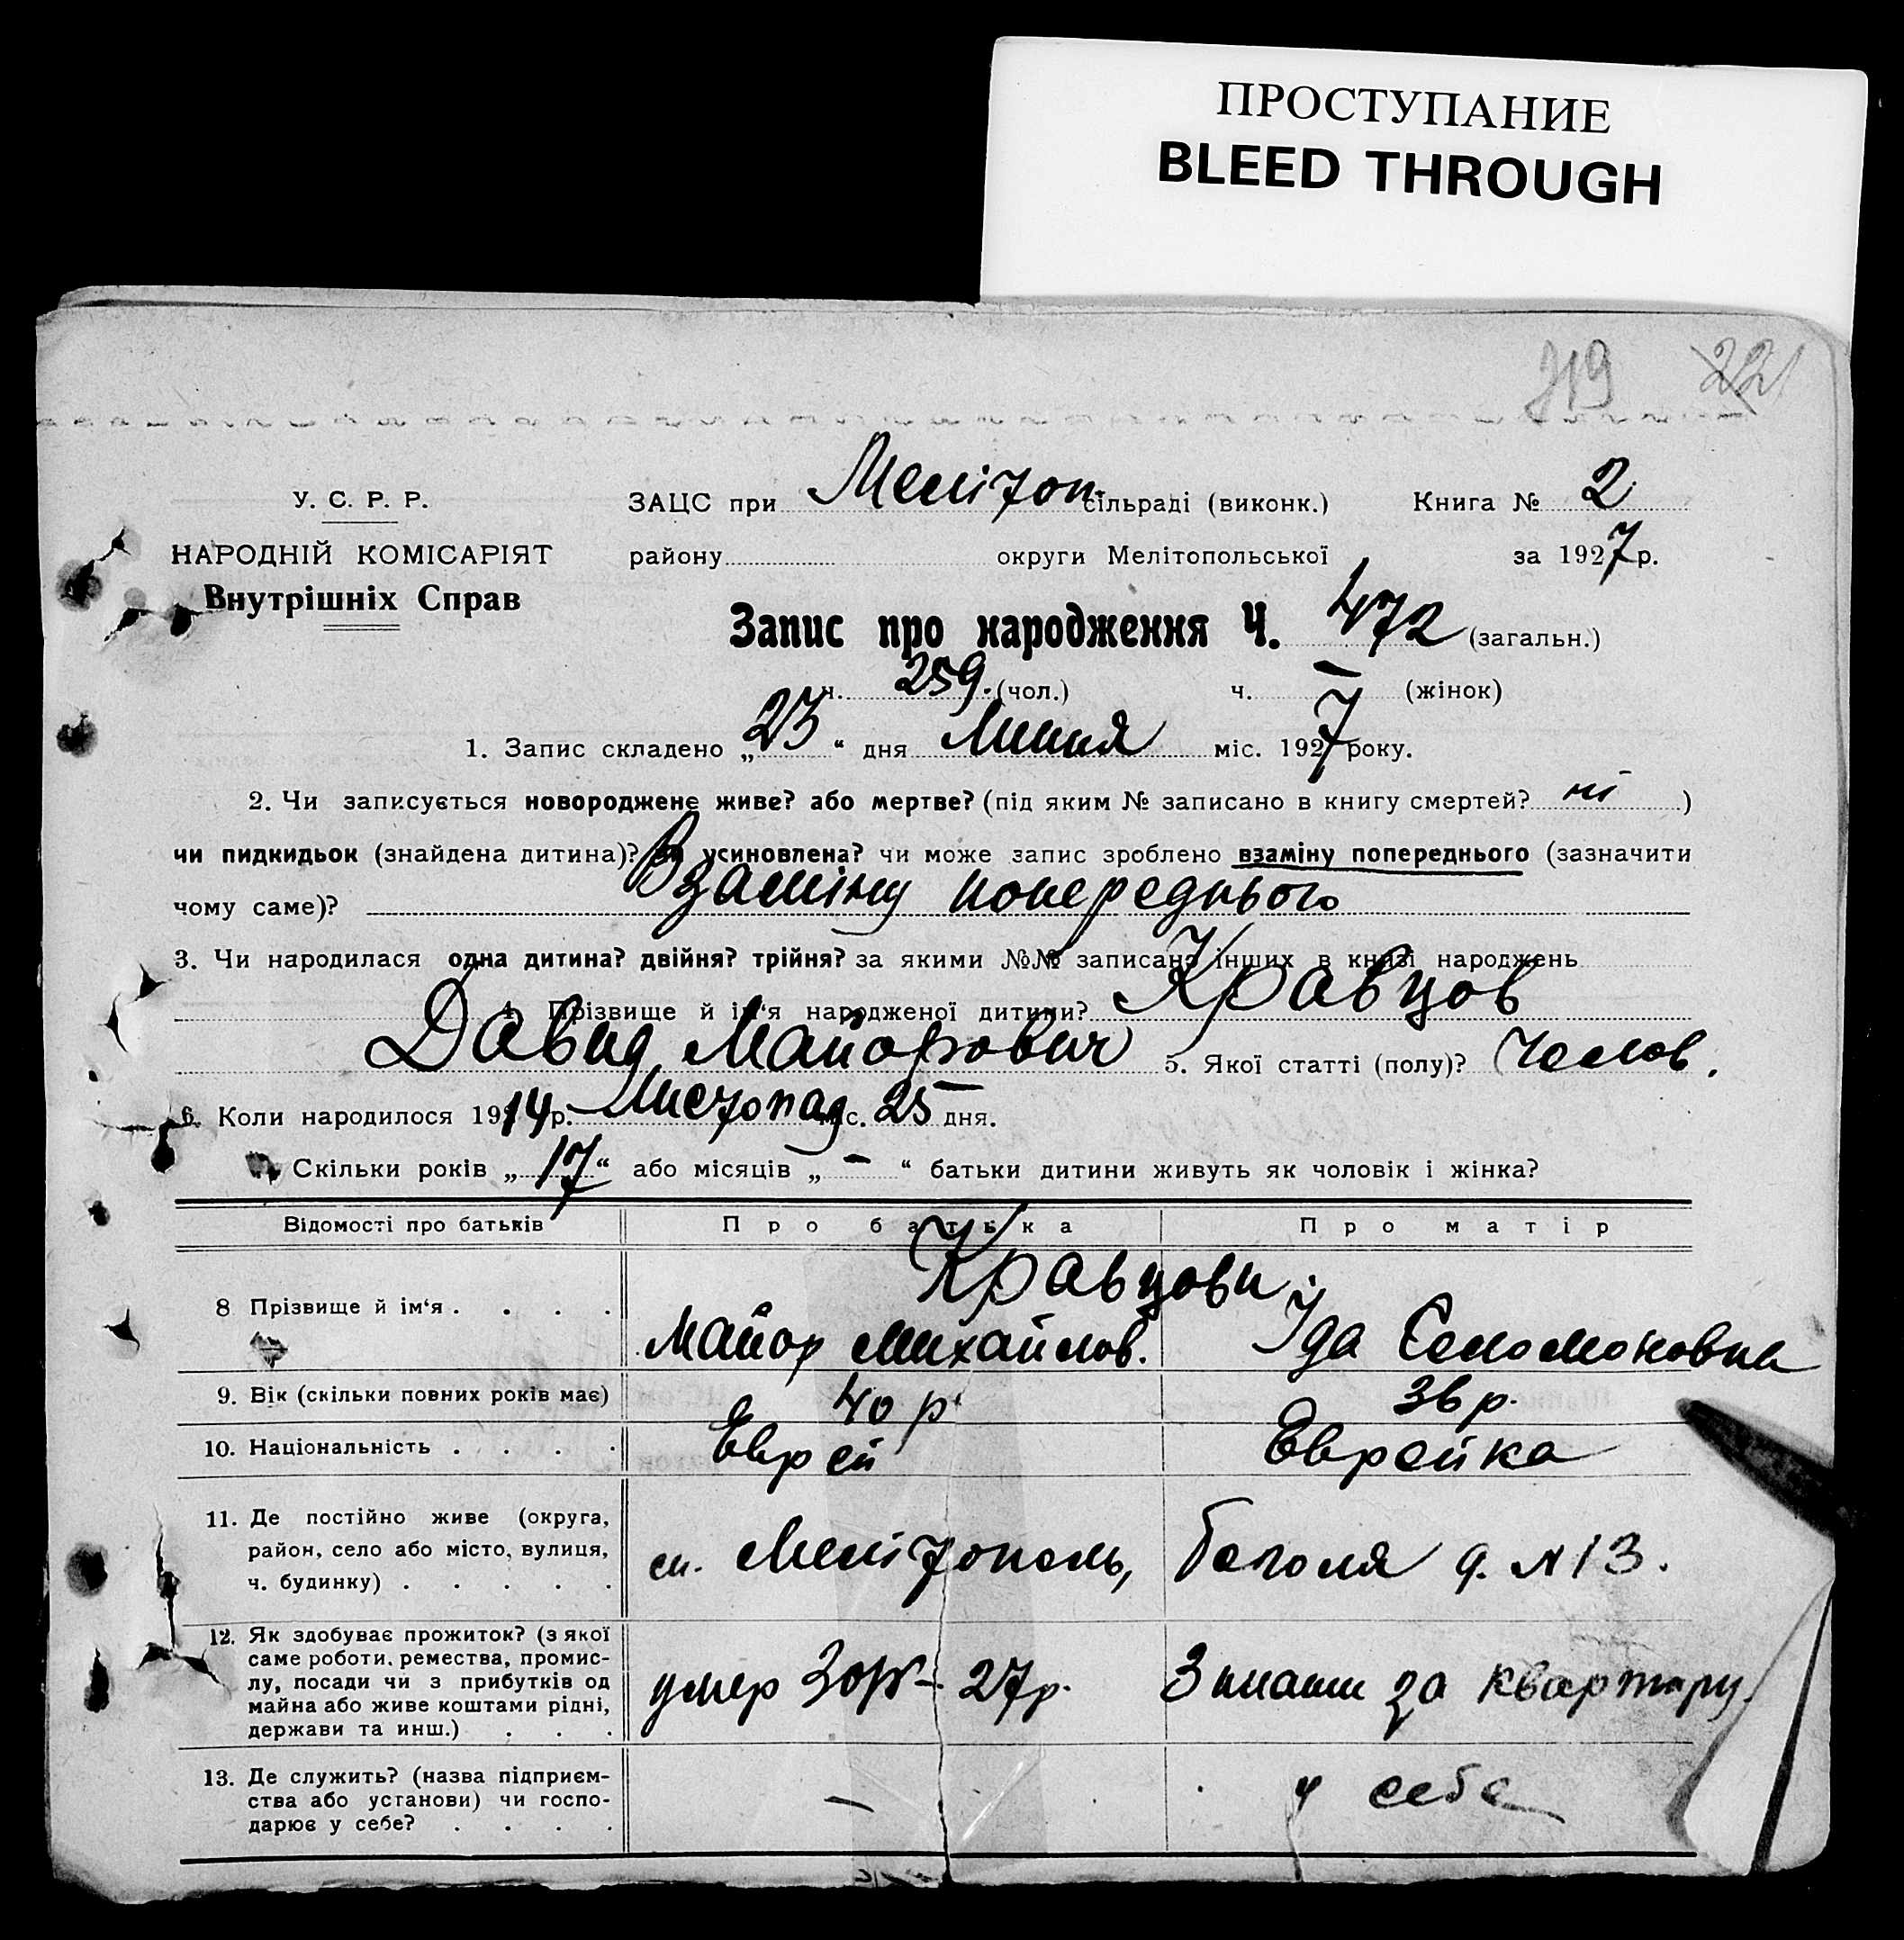 ПРОСТУПАНИЕ
BLEED THROUGH
319 221
У. С. Р. Р.
НАРОДНІЙ КОМІСАРІЯТ
Внутрішніх Справ
ЗАЦС при Меліτоп. сільраді (виконк.) Книга № 2
району округи Мелітопольської за 1927 р.
Запис про народження Ч. 472 (загальн.)
ч. 259. (чол.) ч. — (жінок)
1. Запис складено „23“ дня Липня міс. 1927 року.
2. Чи записується новороджене живе? або мертве? (під яким № записано в книгу смертей? ні )
чи пидкидьок (знайдена дитина)? чи усиновлена? чи може запис зроблено взаміну попереднього (зазначити
чому саме)? Взаміну попереднього
3. Чи народилася одна дитина? двійня? трійня? за якими №№ записано інших в книзі народжень
4. Прізвище й ім‘я народженої дитини? Кравцов
Давид Майорович 5. Якої статті (полу)? Челов.
6. Коли народилося 1914 р. Листопад міс. 25 дня.
Скільки років „17“ або місяців „—“ батьки дитини живуть як чоловік і жінка?
Відомості про батьків Про батька Про матір
Кравцови.
8 Прізвище й ім‘я . . . . Майор Михайлов. Іда Соломоновна
9. Вік (скільки повних років має) 40 р. 36 р.
10. Національність . . . . Еврей Еврейка
11. Де постійно живе (округа,
район, село або місто, вулиця,
ч. будинку) . . . . .
м. Мелітополь, Гоголя д. № 13.
12. Як здобуває прожиток? (з якої
саме роботи, ремества, промис-
лу, посади чи з прибутків од
майна або живе коштами рідні,
держави та инш.) . . .
умер 27р. З плати за квартиру.
13. Де служить? (назва підприєм-
ства або установи) чи госпо-
дарює у себе? . . . .
— у себе